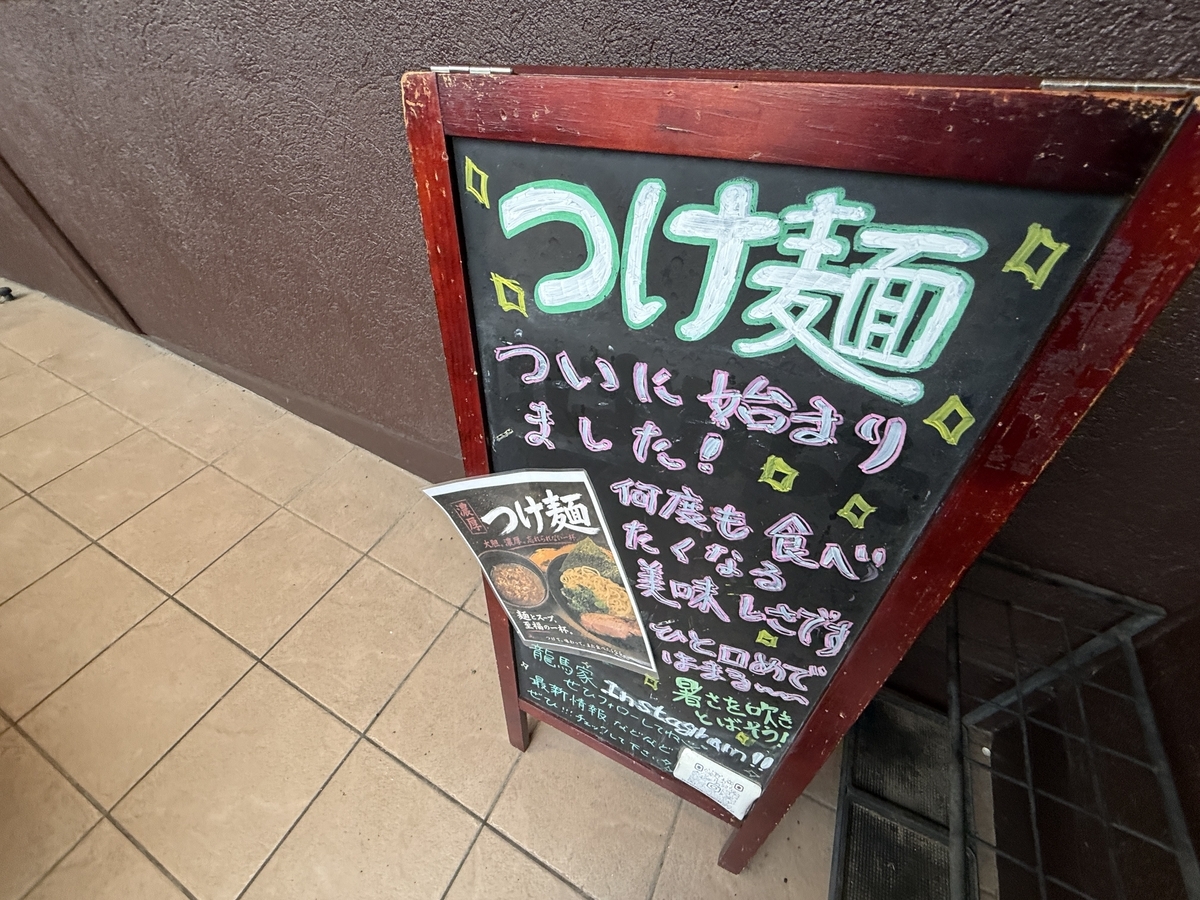 つけ麺
ついに始まり
ました!
何度も食べ
たくなる
美味しさです
ひと口めで
はまる〜〜
暑さを吹き
とばそう!
濃厚
つけ麺
大胆、濃厚。忘れられない一杯
麺とスープ、
至福の一杯。
龍馬家
Instagram!!
ぜひフォローしてね
最新情報などなど
ぜひ!!!チェックして下さい